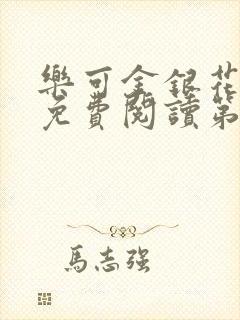 樂可金銀花
免費閱讀第
馬志強